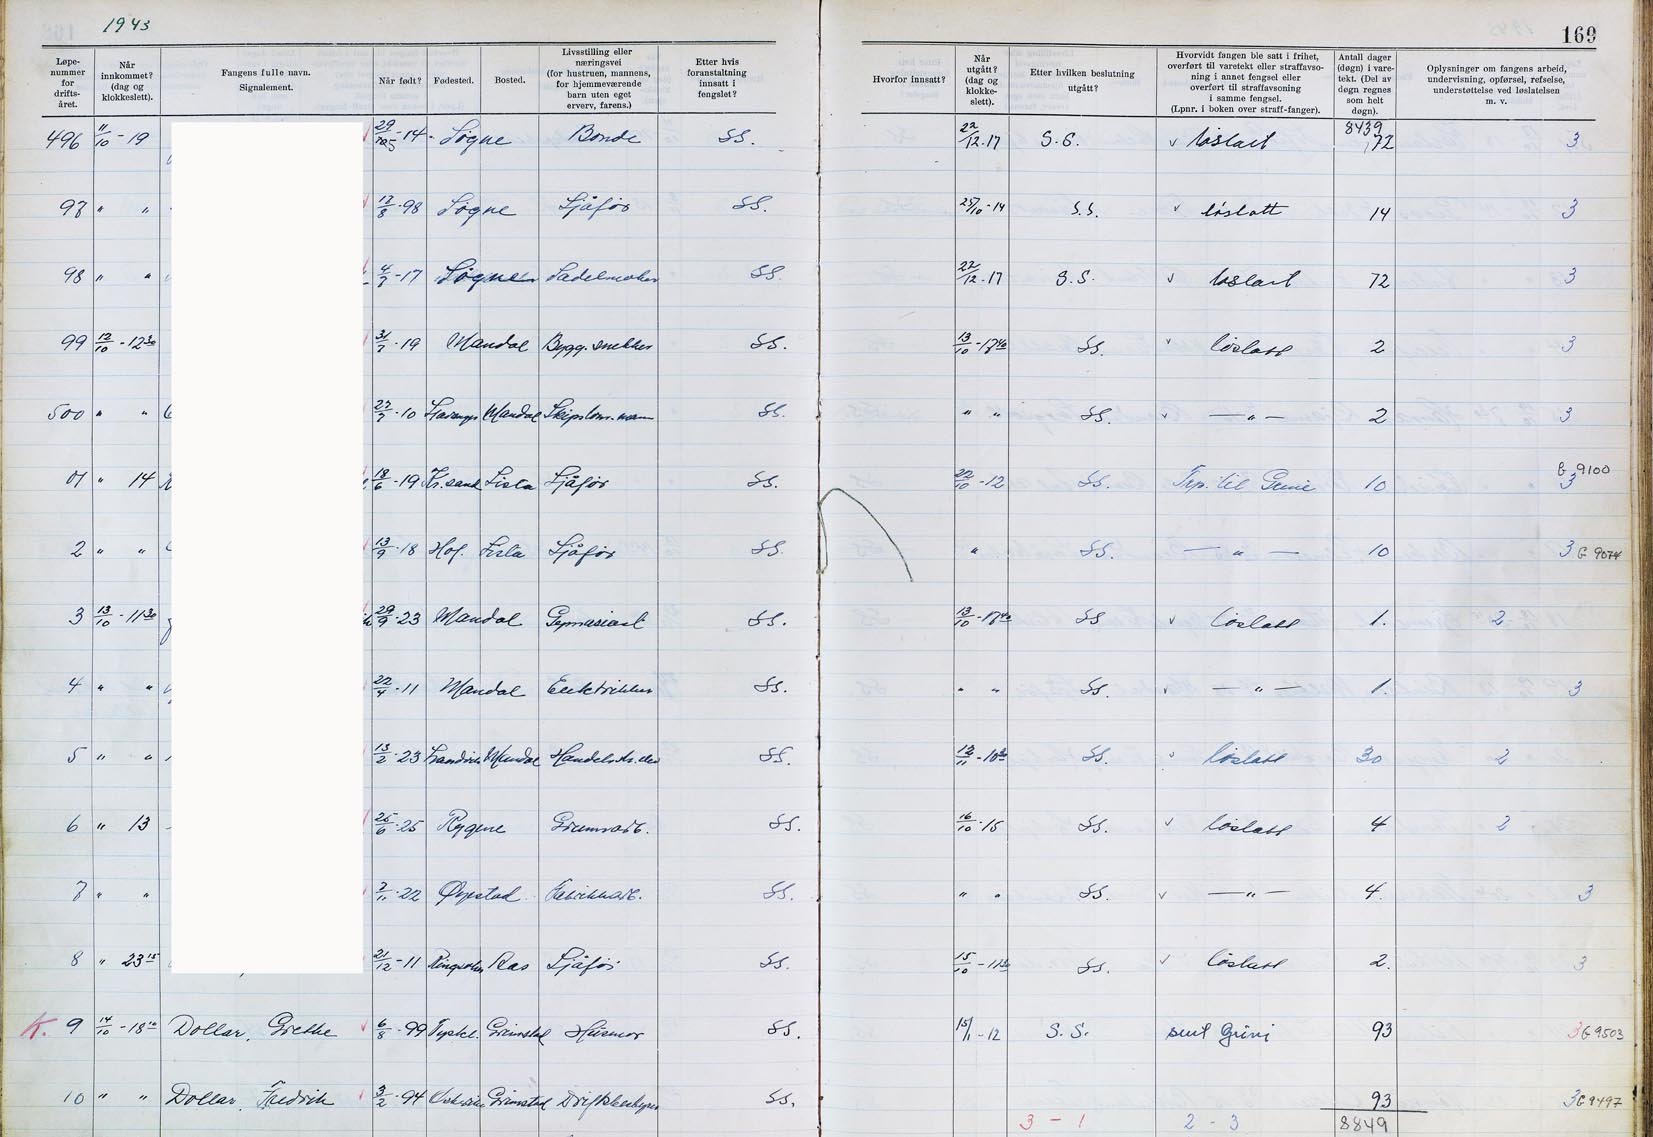 1943
169
Løpe-nummer for drifts-året.
Når innkommet? (dag og klokkeslett).
Fangens fulle navn. Signalement.
Når født?
Fødested.
Bosted.
Livsstilling eller næringsvei (for hustruen, mannens, for hjemmeværende barn uten eget erverv, farens.)
Etter hvis foranstaltning innsatt i fengslet?
Hvorfor innsatt?
Når utgått? (dag og klokke-slett).
Etter hvilken beslutning utgått?
Hvorvidt fangen ble satt i frihet, overført til varetekt eller straffavso-ning i annet fengsel eller overført til straffavsoning i samme fengsel. (Lpnr. i boken over straff-fanger).
Antall dager (døgn) i vare-tekt. (Del av døgn regnes som helt døgn).
Oplysninger om fangens arbeid, undervisning, opførsel, refselse, understøttelse ved løslatelsen m. v.
8439
496 11/10 - 19 29/10 - 14 - Søgne Bonde SS. 22/12 - 17 S.S. løslatt 72 3
97 " " 17/8 - 98 Søgne Sjåfør SS. 25/10 - 14 S.S. løslatt 14 3
98 " " 4/7 - 17 Søgne Sadelmaker SS. 22/12 - 17 S.S. løslatt 72 3
99 12/10 - 12 30 31/7 - 19 Mandal Bygg.snekker SS. 13/10 - 17 40 SS. løslatt 2 3
500 " " 27/7 - 10 Mandal SS. " " SS. — " — 2 3
01 " 14 18/6 - 19 Kr.sand Lista Sjåfør SS. 22/10 - 12 SS. Trp. til Grini 10 3 G 9100
2 " " 13/9 - 18 Hof. Lista Sjåfør SS. " SS. — " — 10 3 G 9074
3 13/10 - 11 30 29/9 - 23 Mandal Gymnasiast SS. 13/10 - 17 40 SS løslatt 1. 2
4 " " 22/4 - 11 Mandal Elektrikker SS. " " SS. — " — 1. 3
5 " " 13/2 - 23 Mandal SS. 12/11 - 10 30 SS. løslatt 30 2
6 " 13 25/6 - 25 Rygene SS. 16/10 - 15 SS. løslatt 4 2
7 " " 2/11 - 22 Øyestad Fabrikkarb. SS. " " SS. — " — 4. 3
8 " 23 15 21/12 - 11 Ros Sjåfør SS. 15/10 - 11 30 SS. løslatt 2. 3
K. 9 14/10 - 18 10 Dollar, Grethe 6/8 - 99 Tyskl. Grimstad Husmor SS. 15/1 - 12 S.S. sent Grini 93 3 G 9503
10 " " Dollar, Fredrik 3/2 - 94 Grimstad Driftsbestyrer SS. 93 3 G 9497
3 - 1 2 - 3 8849